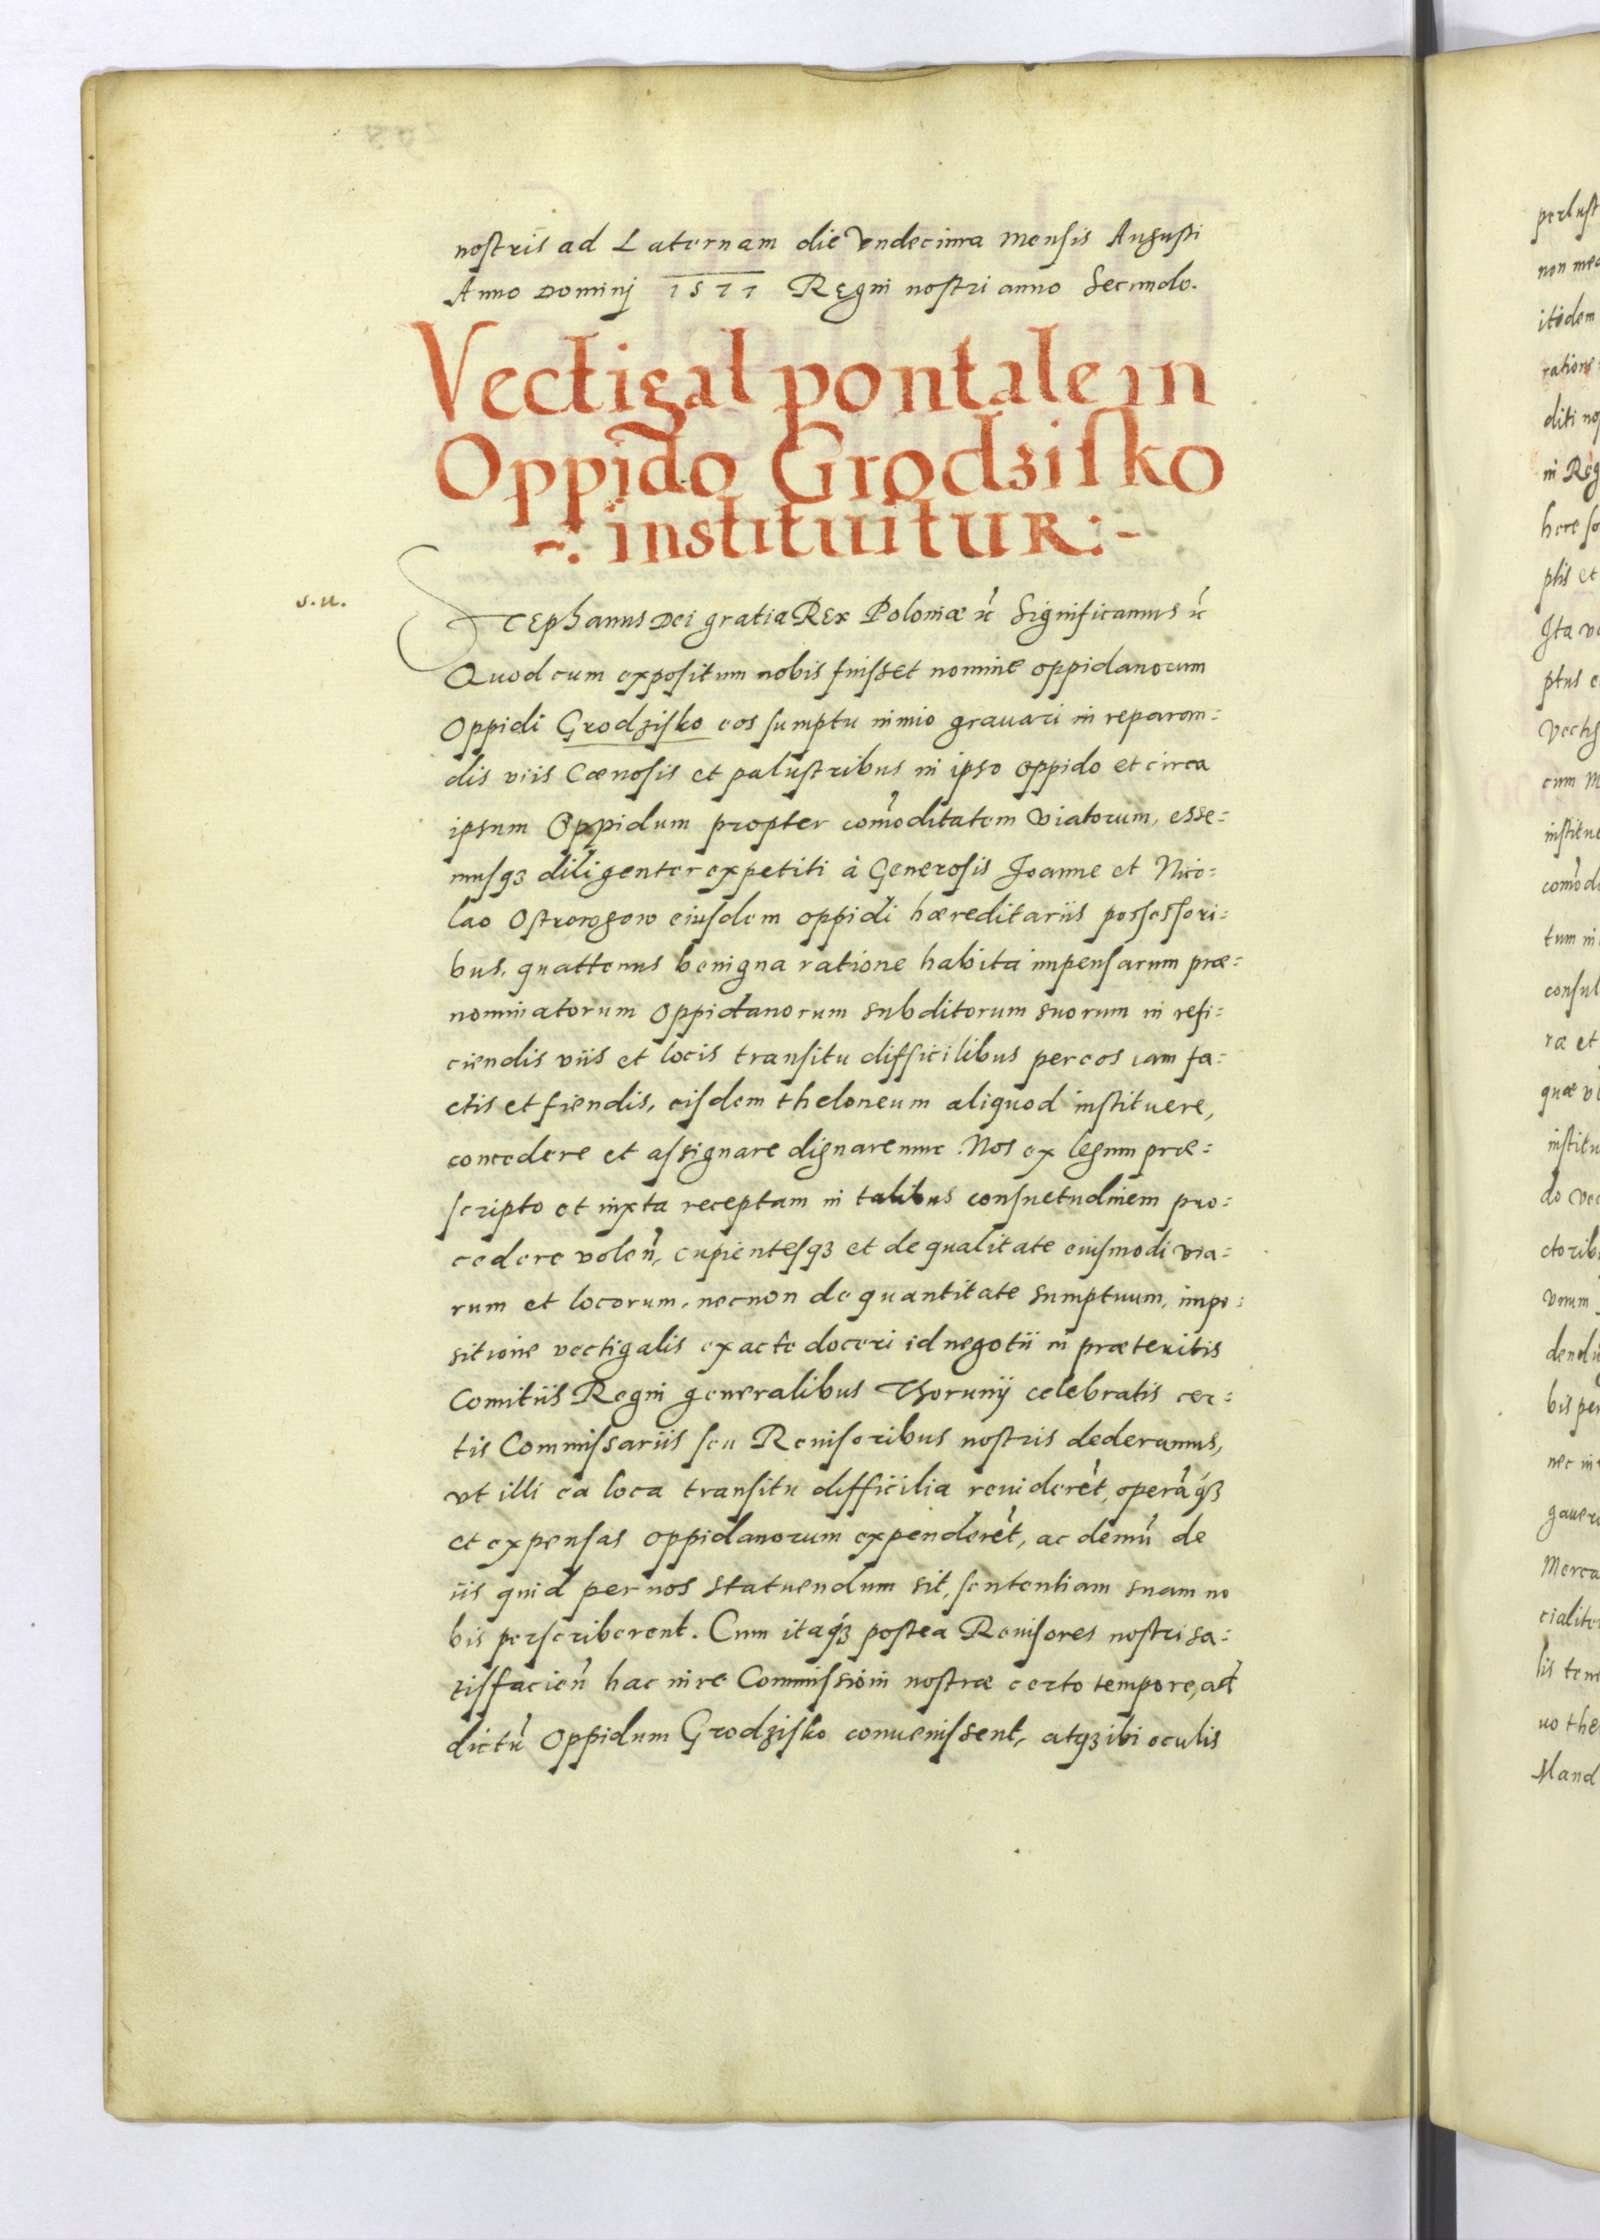 nostris ad Laternam die Vndecima Mensis Augusti
Anno Dominj 1577 Regni nostri anno Secundo.
Vectigal pontale in
Oppido Grodzisko
~: instituitur :~
s.u.
Stephanus Dei gratia Rex Poloniæ ec̃ Significamus ec̃
Quod cum expositum nobis fuisset nomine oppidanorum
Oppidi Grodzisko eos sumptu nimio grauari in reparan=
dis viis Cœnosis et palustribus in ipso oppido et circa
ipsum Oppidum propter com̃oditatem Viatorum, esse=
musq3 diligenter expetiti à Generosis Joanne et Nico=
lao Ostrowgow eiusdem oppidi hæreditariis possessori=
bus, quattenus benigna ratione habita impensarum præ=
nominatorum Oppidanorum subditorum suorum in refi=
ciendis viis et locis transitu difficilibus per eos iam fa=
ctis et fiendis, eisdem theloneum aliquod instituere,
concedere et assignare dignaremur. Nos ex legum præ=
scripto et iuxta receptam in talibus consuetudinem pro=
cedere volen̄, cupientesq3 et de qualitate eiusmodi via=
rum et locorum, necnon de quantitate sumptuum, impo=
sitione vectigalis exacte doceri id negotii in præteritis
Comitiis Regni generalibus Thorunij celebratis cer=
tis Commissariis seu Reuisoribus nostris dederamus,
vt illi ea loca transitu difficilia reuiderēt, operāq3
et expensas oppidanorum expenderēt, ac demū de
iis quid per nos statuendum sit, sententiam suam no
bis perscriberent. Cum itaq3 postea Reuisores nostri sa=
tisfacien̄ hac in re Commissioni nostræ certo tempore, ad
dictū Oppidum Grodzisko conuenissent, atq3 ibi oculis